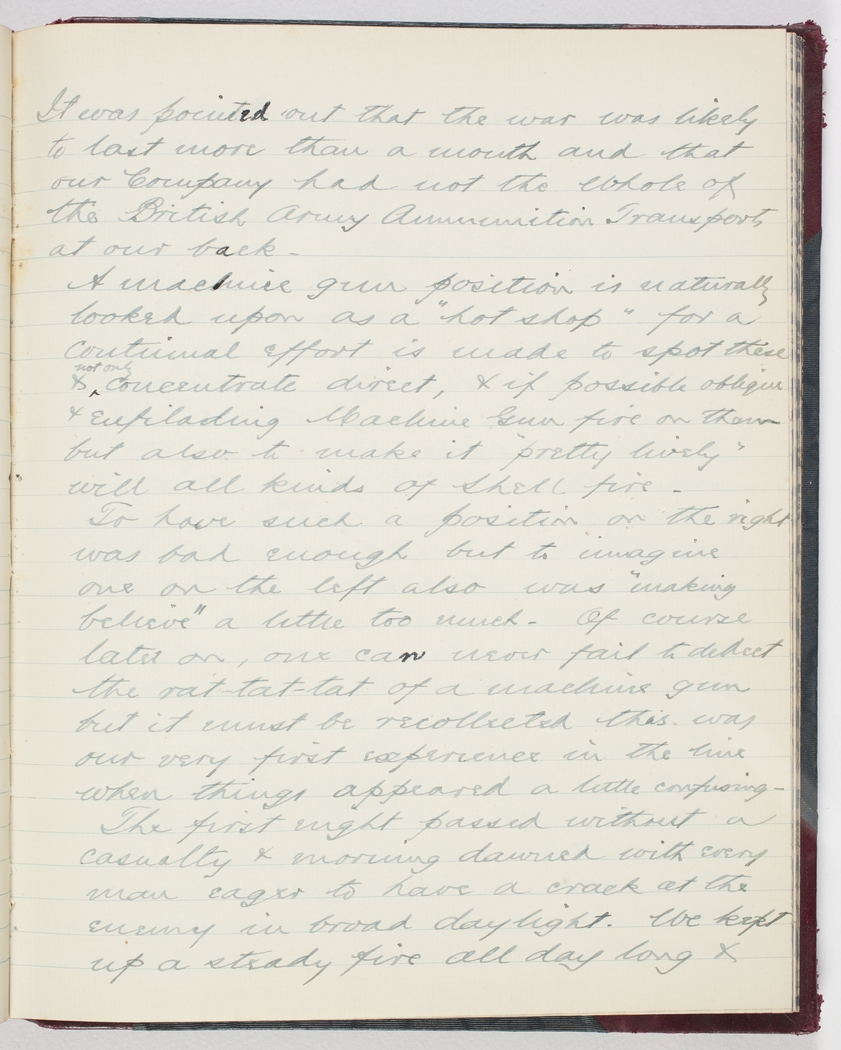 It was pointed out that the war was likely
to last more than a month and that
our Company had not the whole of
the British Army Ammunition Transports
at our back -
A machine gun position is naturally
looked upon as a "hot shop" for a
continual effort is made to spot these
& not only concentrate direct, & if possible oblique
& enfilading Machine Gun fire on them
but also to make it "pretty lively"
will all kinds of shell fire -
To have such a position on the right
was bad enough but to imagine
one on the left also was "making
believe" a little too much - Of course
later on, one can never fail to detect
the rat-tat-tat of a machine gun
but it must be recollected this was
our very first experience in the line
when things appeared a little confusing -
The first night passed without a
casualty & morning dawned with every
man eager to have a crack at the
enemy in broad daylight. We kept
up a steady fire all day long &